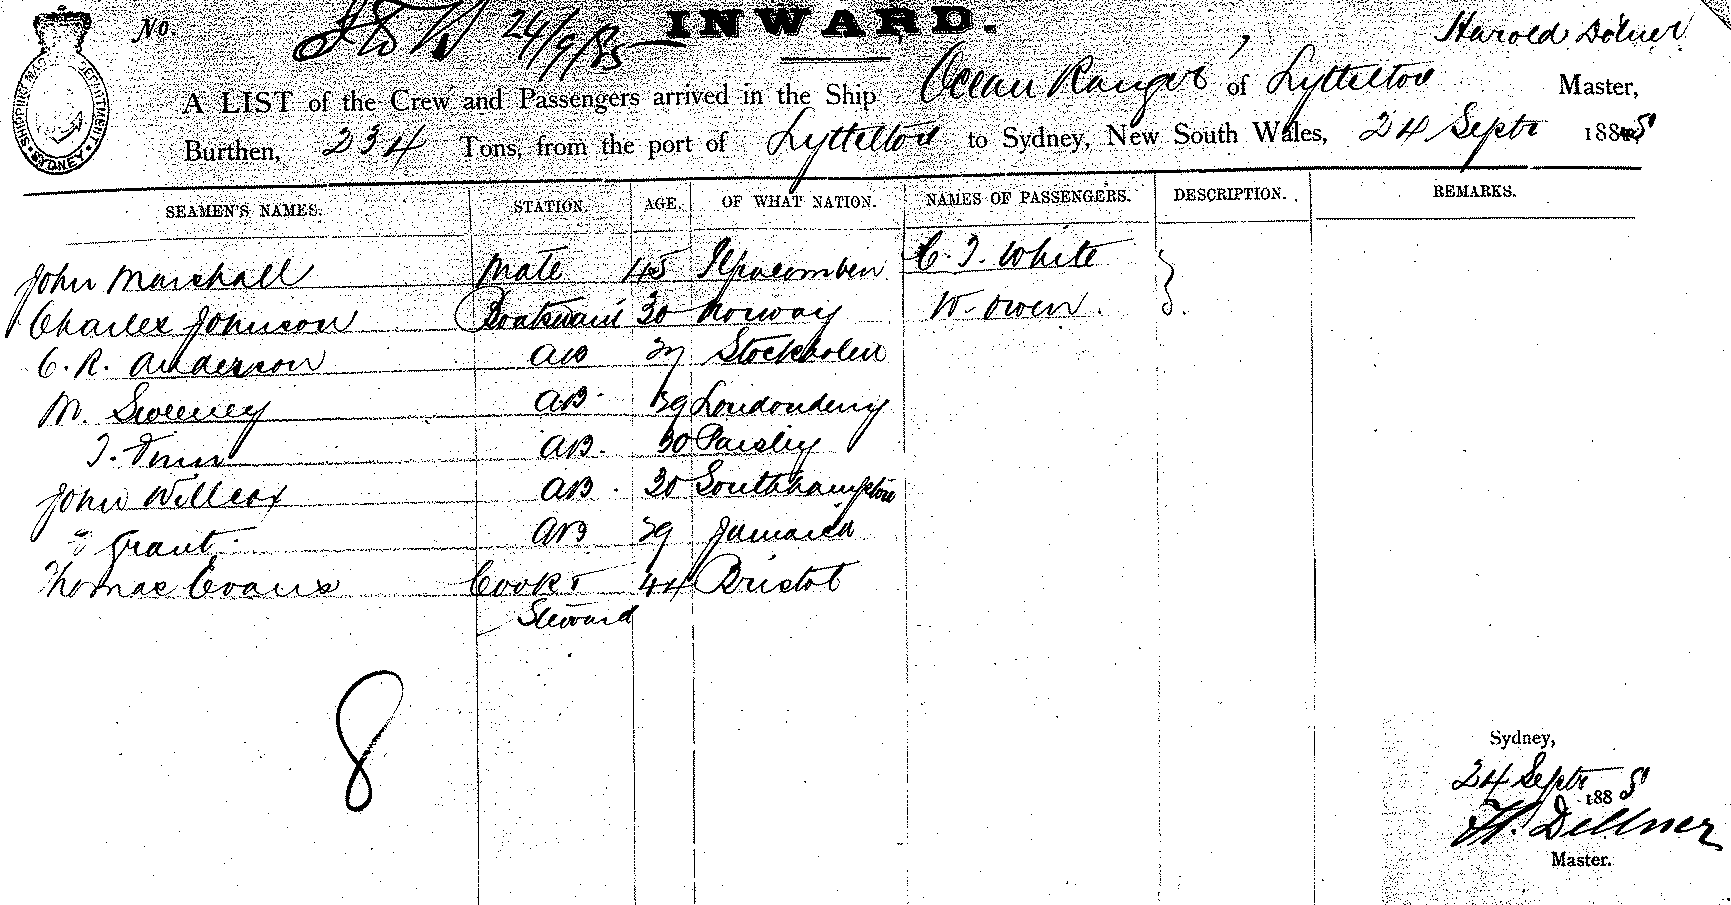 No. 24/9/85 INWARD.
Harold Dölner
A LIST of the Crew and Passengers arrived in the Ship Ocean Ranger of Lyttelton Master,
Burthen, 234 Tons, from the port of Lyttelton to Sydney, New South Wales, 24 Septr 1885
SEAMEN'S NAMES. STATION. AGE. OF WHAT NATION. NAMES OF PASSENGERS. DESCRIPTION. REMARKS.
John Marshall Mate 45 C. J. White
Charles Johnson Boatswain 30 Norway W. Owen.
C. R. Anderson AB Stockholm
M. Sweeney AB. 39 Londonderry
AB. 30 Paisley
John Willcox AB. 30 Southhampton
" Grant. AB 39 Jamaica
Thomas Evans Cook & 44 Bristol
Steward
8
SHIPPING MASTER'S DEPARTMENT. SYDNEY.
Sydney,
24 Septr 1885
H. Dellner
Master.